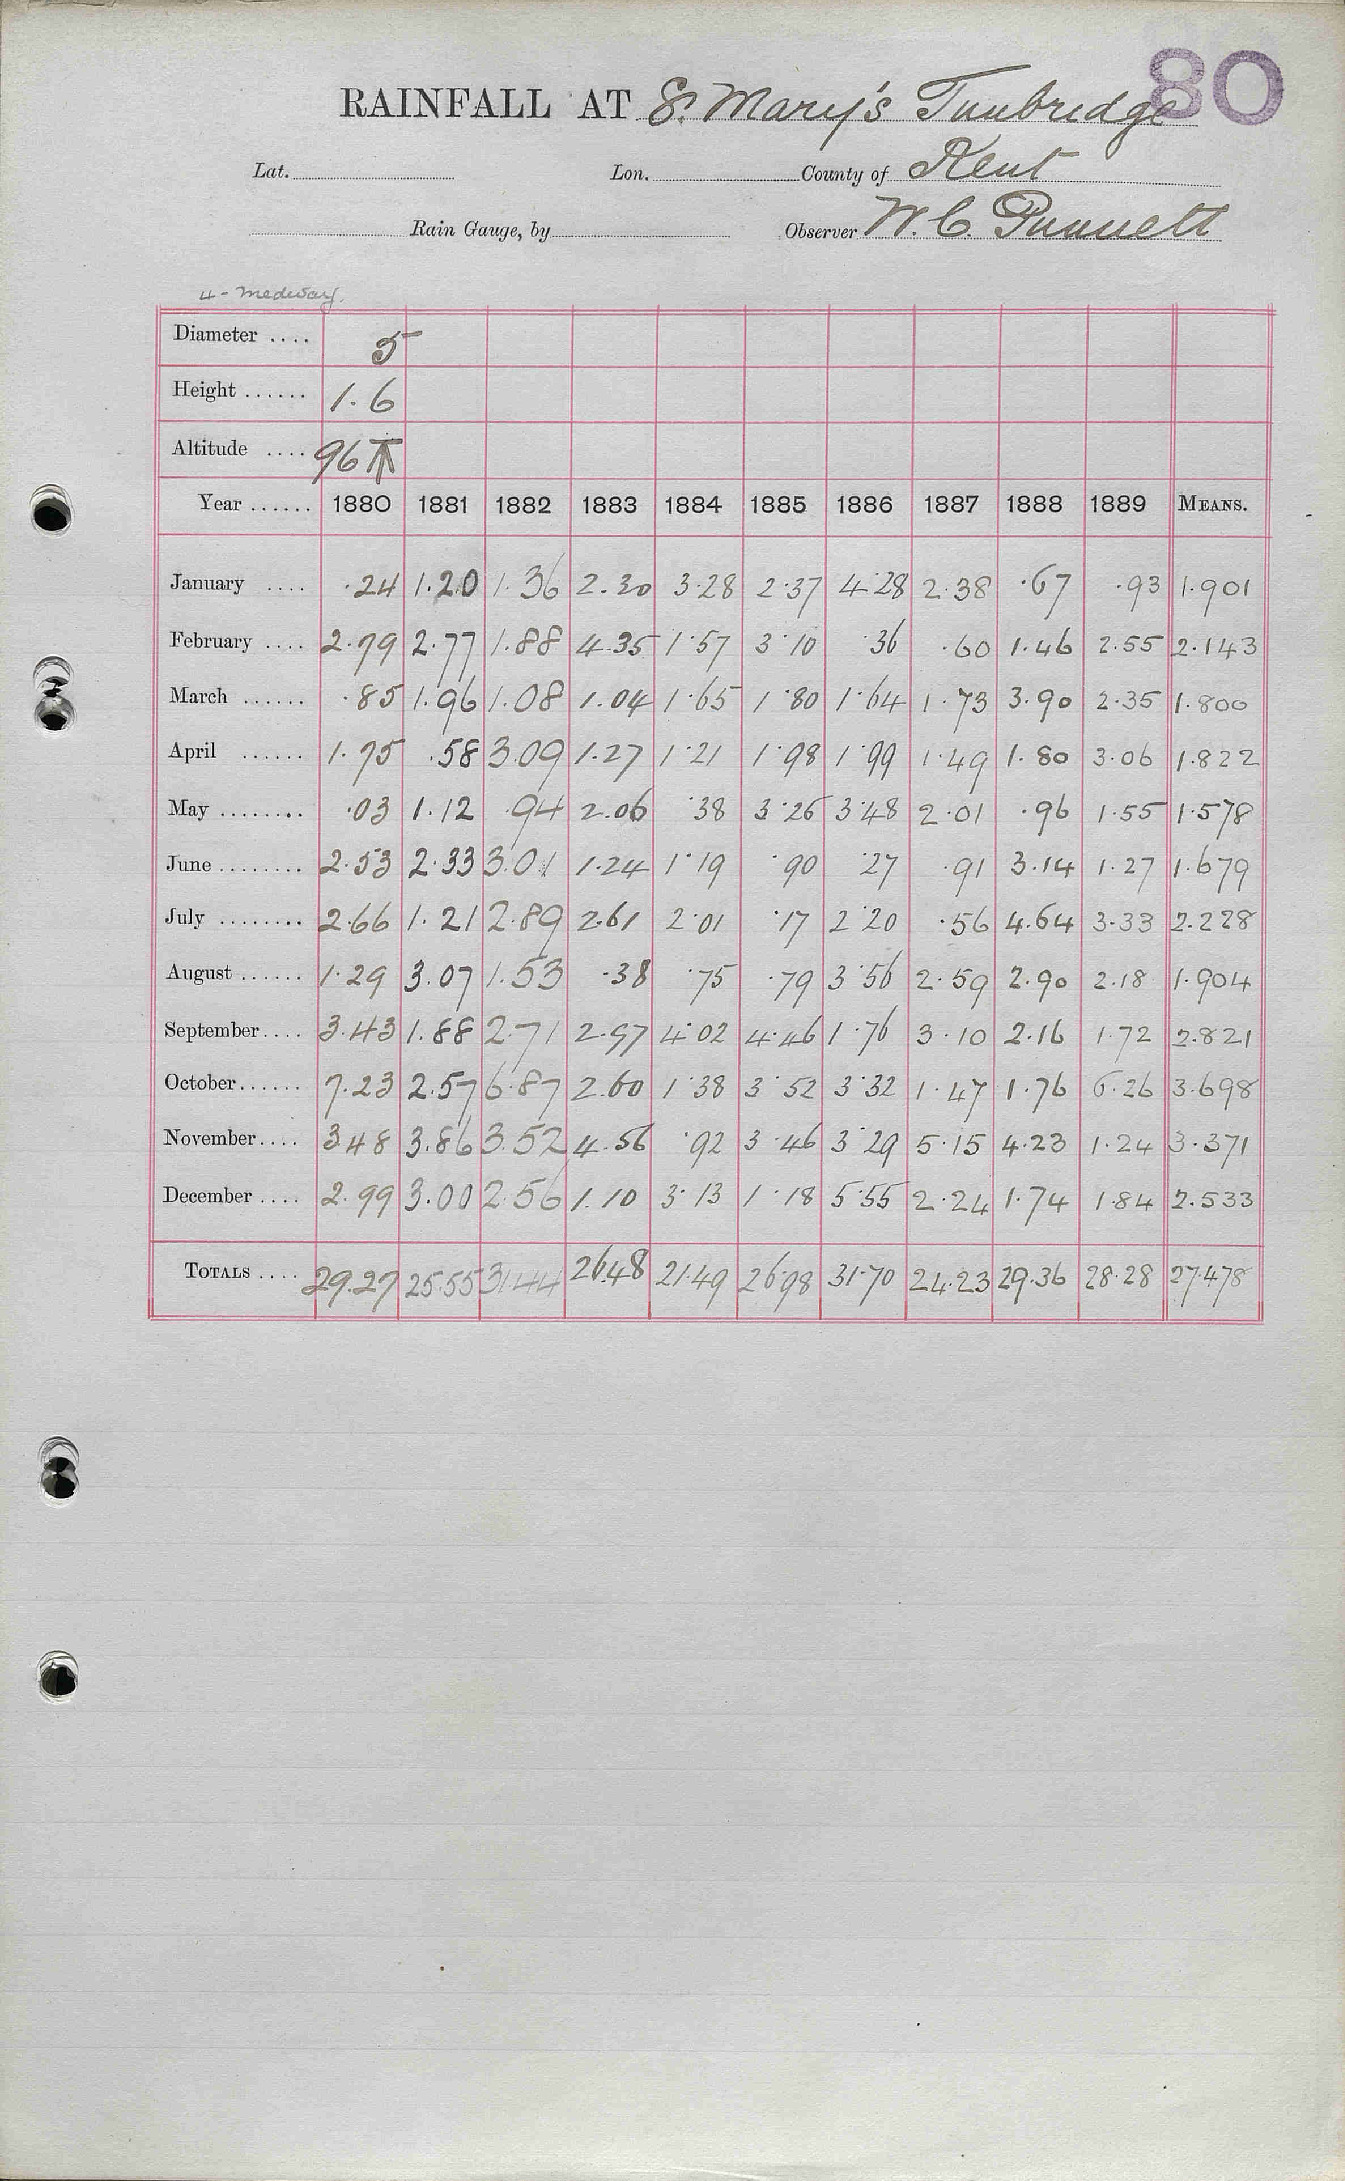 80
RAINFALL AT St. Mary's Tunbridge
Lat. Lon. County of Kent
Rain Gauge, by Observer W. C. Punnett
4 - Medway.
Diameter .... 5
Height ...... 1.6
Altitude .... 96
Year ...... 1880 1881 1882 1883 1884 1885 1886 1887 1888 1889 MEANS.
January .... .24 1.20 1.36 2.30 3.28 2.37 4.28 2.38 .67 .93 1.901
February .... 2.79 2.77 1.88 4.35 1.57 3.10 .36 .60 1.46 2.55 2.143
March ...... .85 1.96 1.08 1.04 1.65 1.80 1.64 1.73 3.90 2.35 1.800
April ...... 1.75 .58 3.09 1.27 1.21 1.98 1.99 1.49 1.80 3.06 1.822
May ........ .03 1.12 .94 2.06 .38 3.26 3.48 2.01 .96 1.55 1.578
June ........ 2.53 2.33 3.01 1.24 1.19 .90 .27 .91 3.14 1.27 1.679
July ........ 2.66 1.21 2.89 2.61 2.01 .17 2.20 .56 4.64 3.33 2.228
August ...... 1.29 3.07 1.53 .38 .75 .79 3.56 2.59 2.90 2.18 1.904
September .... 3.43 1.88 2.71 2.97 4.02 4.46 1.76 3.10 2.16 1.72 2.821
October ...... 7.23 2.57 6.87 2.60 1.38 3.52 3.32 1.47 1.76 6.26 3.698
November .... 3.48 3.86 3.52 4.56 .92 3.46 3.29 5.15 4.23 1.24 3.371
December .... 2.99 3.00 2.56 1.10 3.13 1.18 5.55 2.24 1.74 1.84 2.533
TOTALS .... 29.27 25.55 31.44 26.48 21.49 26.98 31.70 24.23 29.36 28.28 27.478